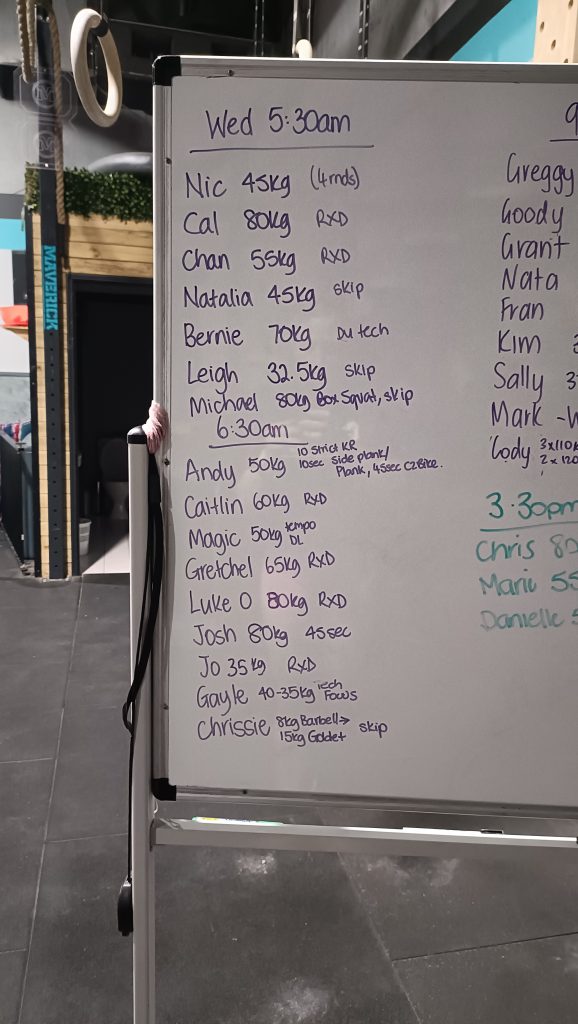 Wed 5:30am
Nic 45kg (4rnds)
Cal 80kg RXD
Chan 55kg RXD
Natalia 45kg skip
Bernie 70kg DU tech
Leigh 32.5kg skip
Michael 80kg Box Squat, skip
6:30am
Andy 50kg 10 Strict KR
10sec side plank/
Plank, 45sec C2Bike.
Caitlin 60kg RXD
Magic 50kg tempo
DL
Gretchel 65kg RXD
Luke O 80kg RXD
Josh 80kg 45sec
Jo 35kg RXD
Gayle 40-35kg Tech
Focus
Chrissie 8kg Barbell→
15kg Goblet skip
9
Greggy
Goody
Grant
Nata
Fran
Kim
Sally 3
Mark -
Cody 3x110
2x120
3:30pm
Chris 80
Marii 55
Danielle 5
MAVERICK